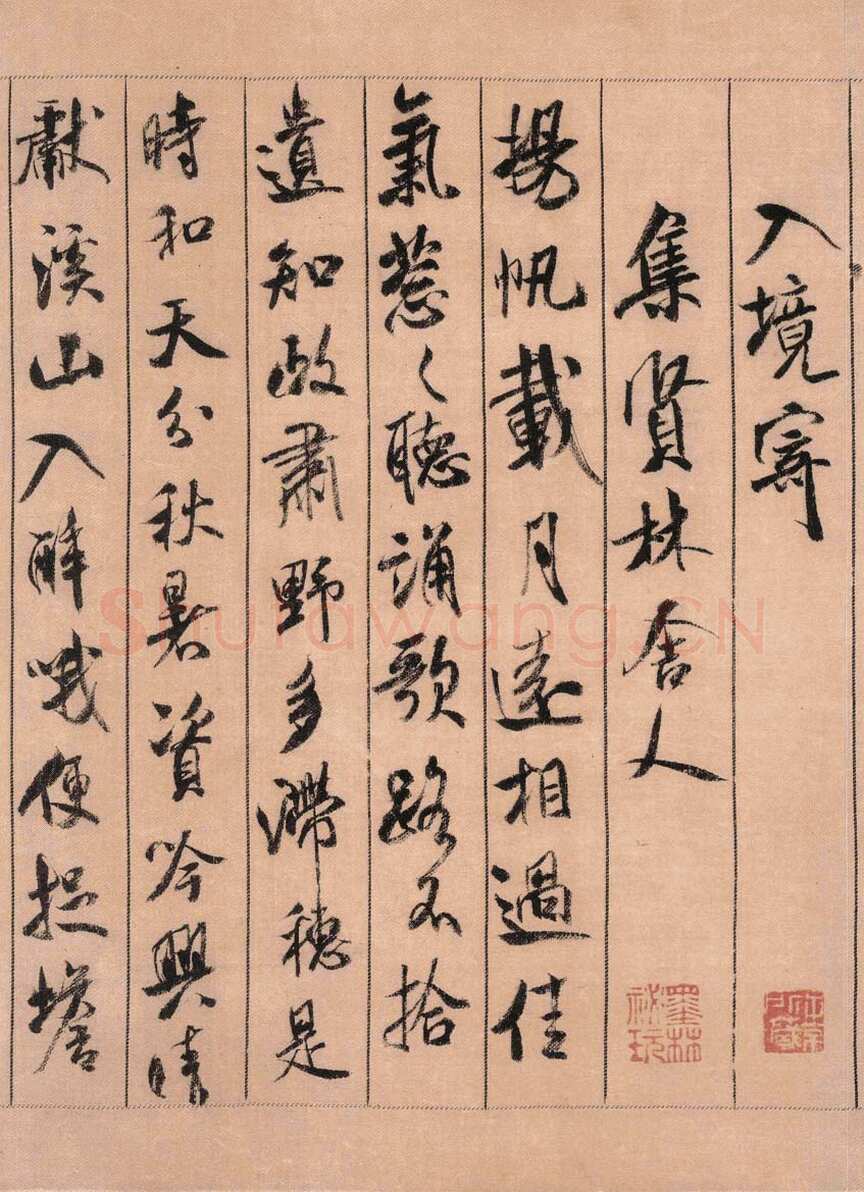 入境寄
集賢林舍人
揚帆載月遠相過佳
氣葱〻聽誦歌路不拾
遺知政肅野多滯穗是
時和天分秋暑資吟興晴
獻溪山入醉哦便捉蟾
墨林祕玩
Shufawang.CN